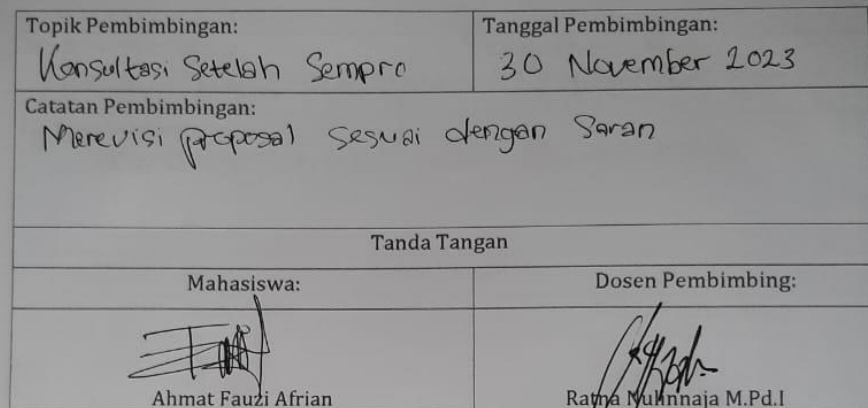 Topik Pembimbingan:
Konsultasi Setelah Sempro
Tanggal Pembimbingan:
30 November 2023
Catatan Pembimbingan:
Merevisi proposal sesuai dengan Saran
Tanda Tangan
Mahasiswa:
Dosen Pembimbing:
Ahmat Fauzi Afrian
Ratna Nulinnaja M.Pd.I